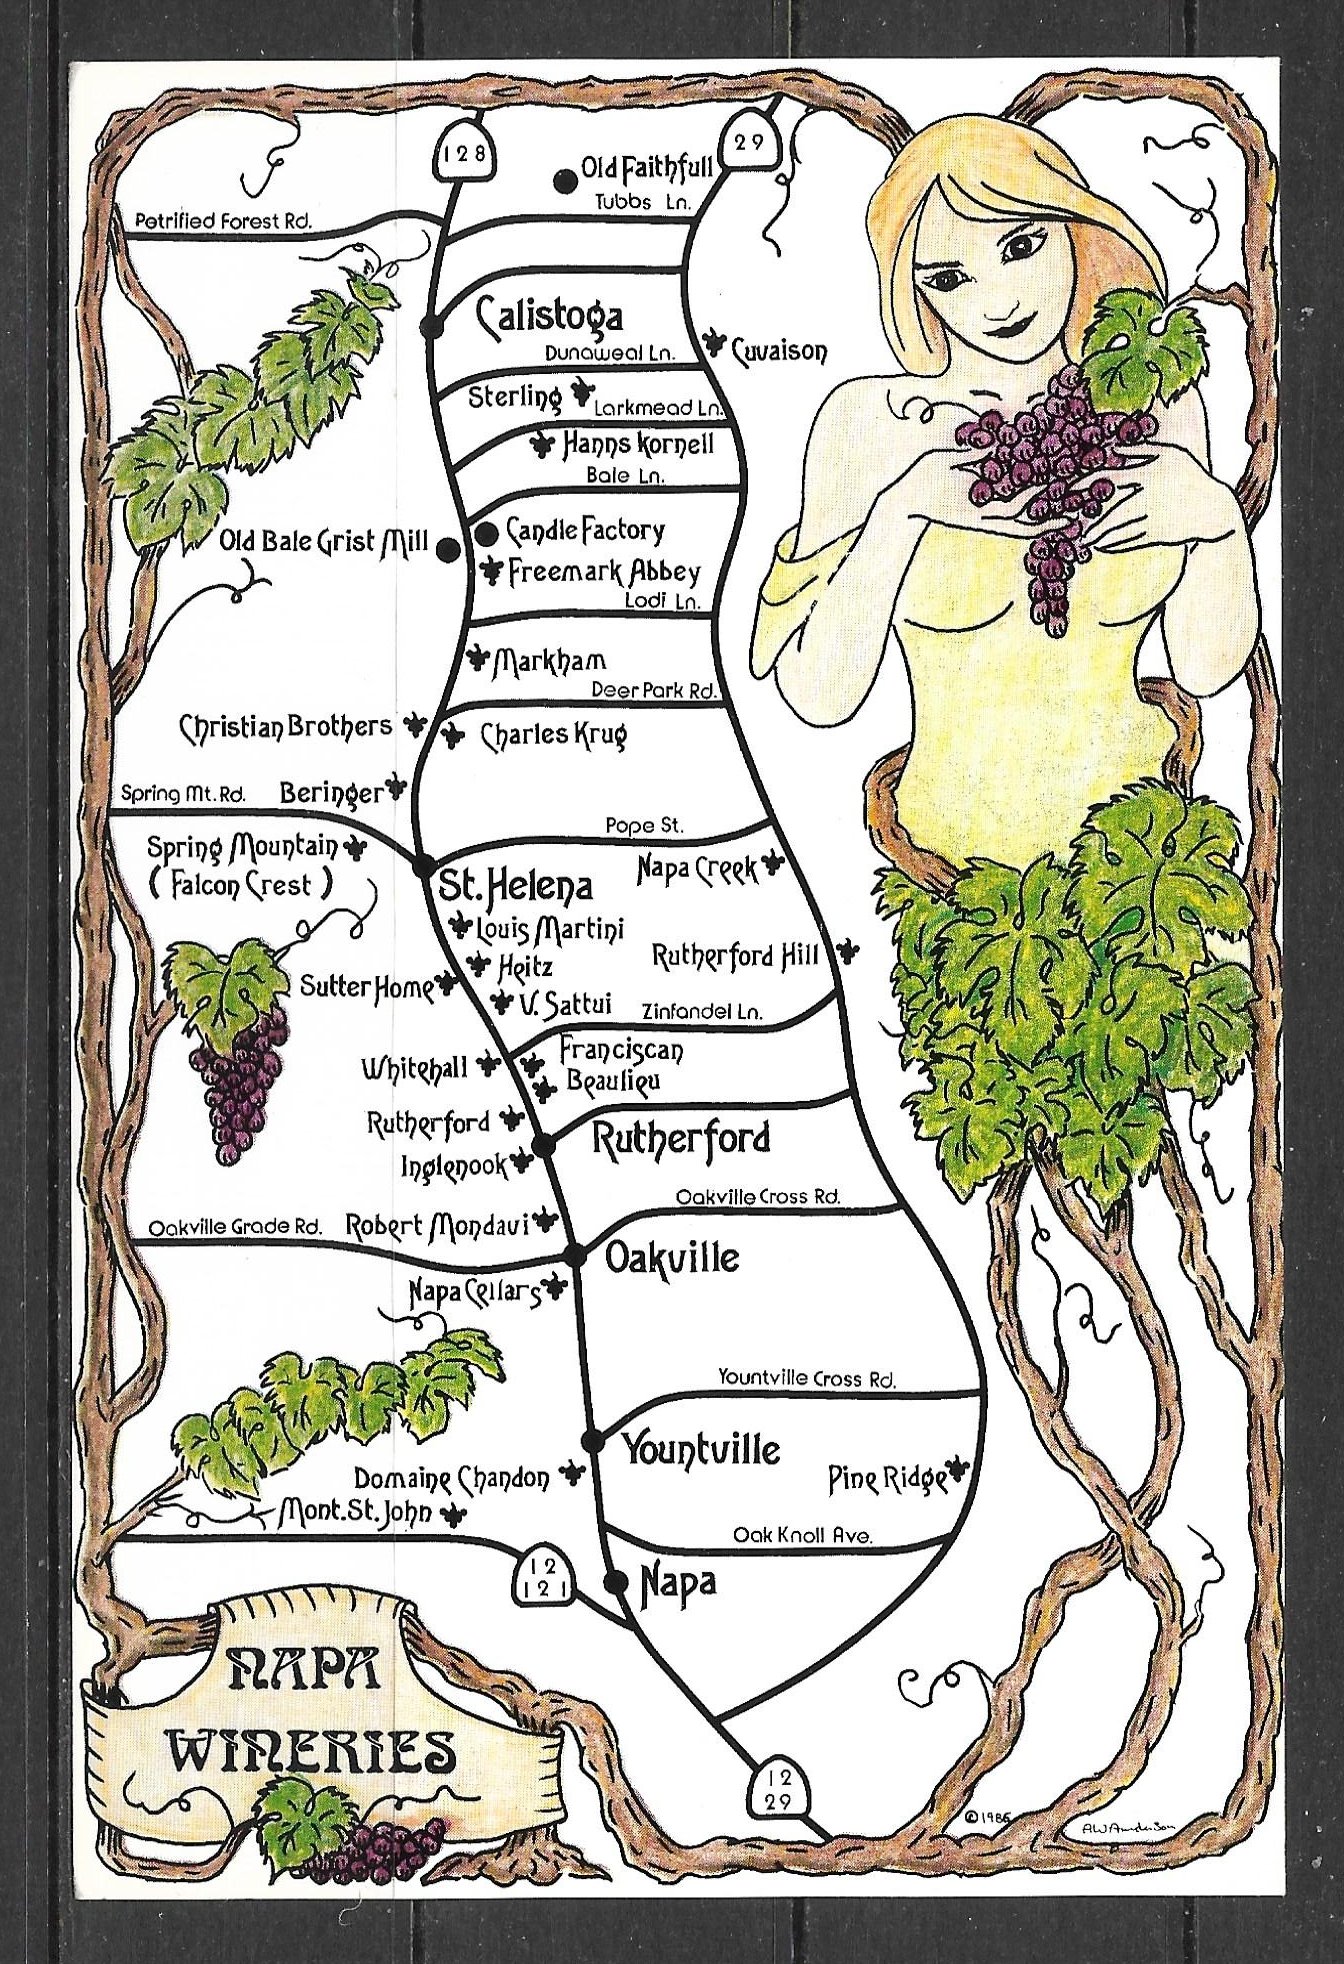 128
29
Old Faithfull
Tubbs Ln.
Petrified Forest Rd.
Calistoga
Dunaweal Ln.
Cuvaison
Sterling
Larkmead Ln.
Hanns Kornell
Bale Ln.
Old Bale Grist Mill
Candle Factory
Freemark Abbey
Lodi Ln.
Markham
Deer Park Rd.
Christian Brothers
Charles Krug
Spring Mt. Rd.
Beringer
Pope St.
Spring Mountain
( Falcon Crest )
Napa Creek
St. Helena
Louis Martini
Rutherford Hill
Heitz
Sutter Home
V. Sattui
Zinfandel Ln.
Whitehall
Franciscan
Beaulieu
Rutherford
Rutherford
Inglenook
Oakville Cross Rd.
Oakville Grade Rd.
Robert Mondavi
Oakville
Napa Cellars
Yountville Cross Rd.
Yountville
Domaine Chandon
Pine Ridge
Mont. St. John
Oak Knoll Ave.
12
121
Napa
NAPA
WINERIES
12
29
©1986
AW Anderson